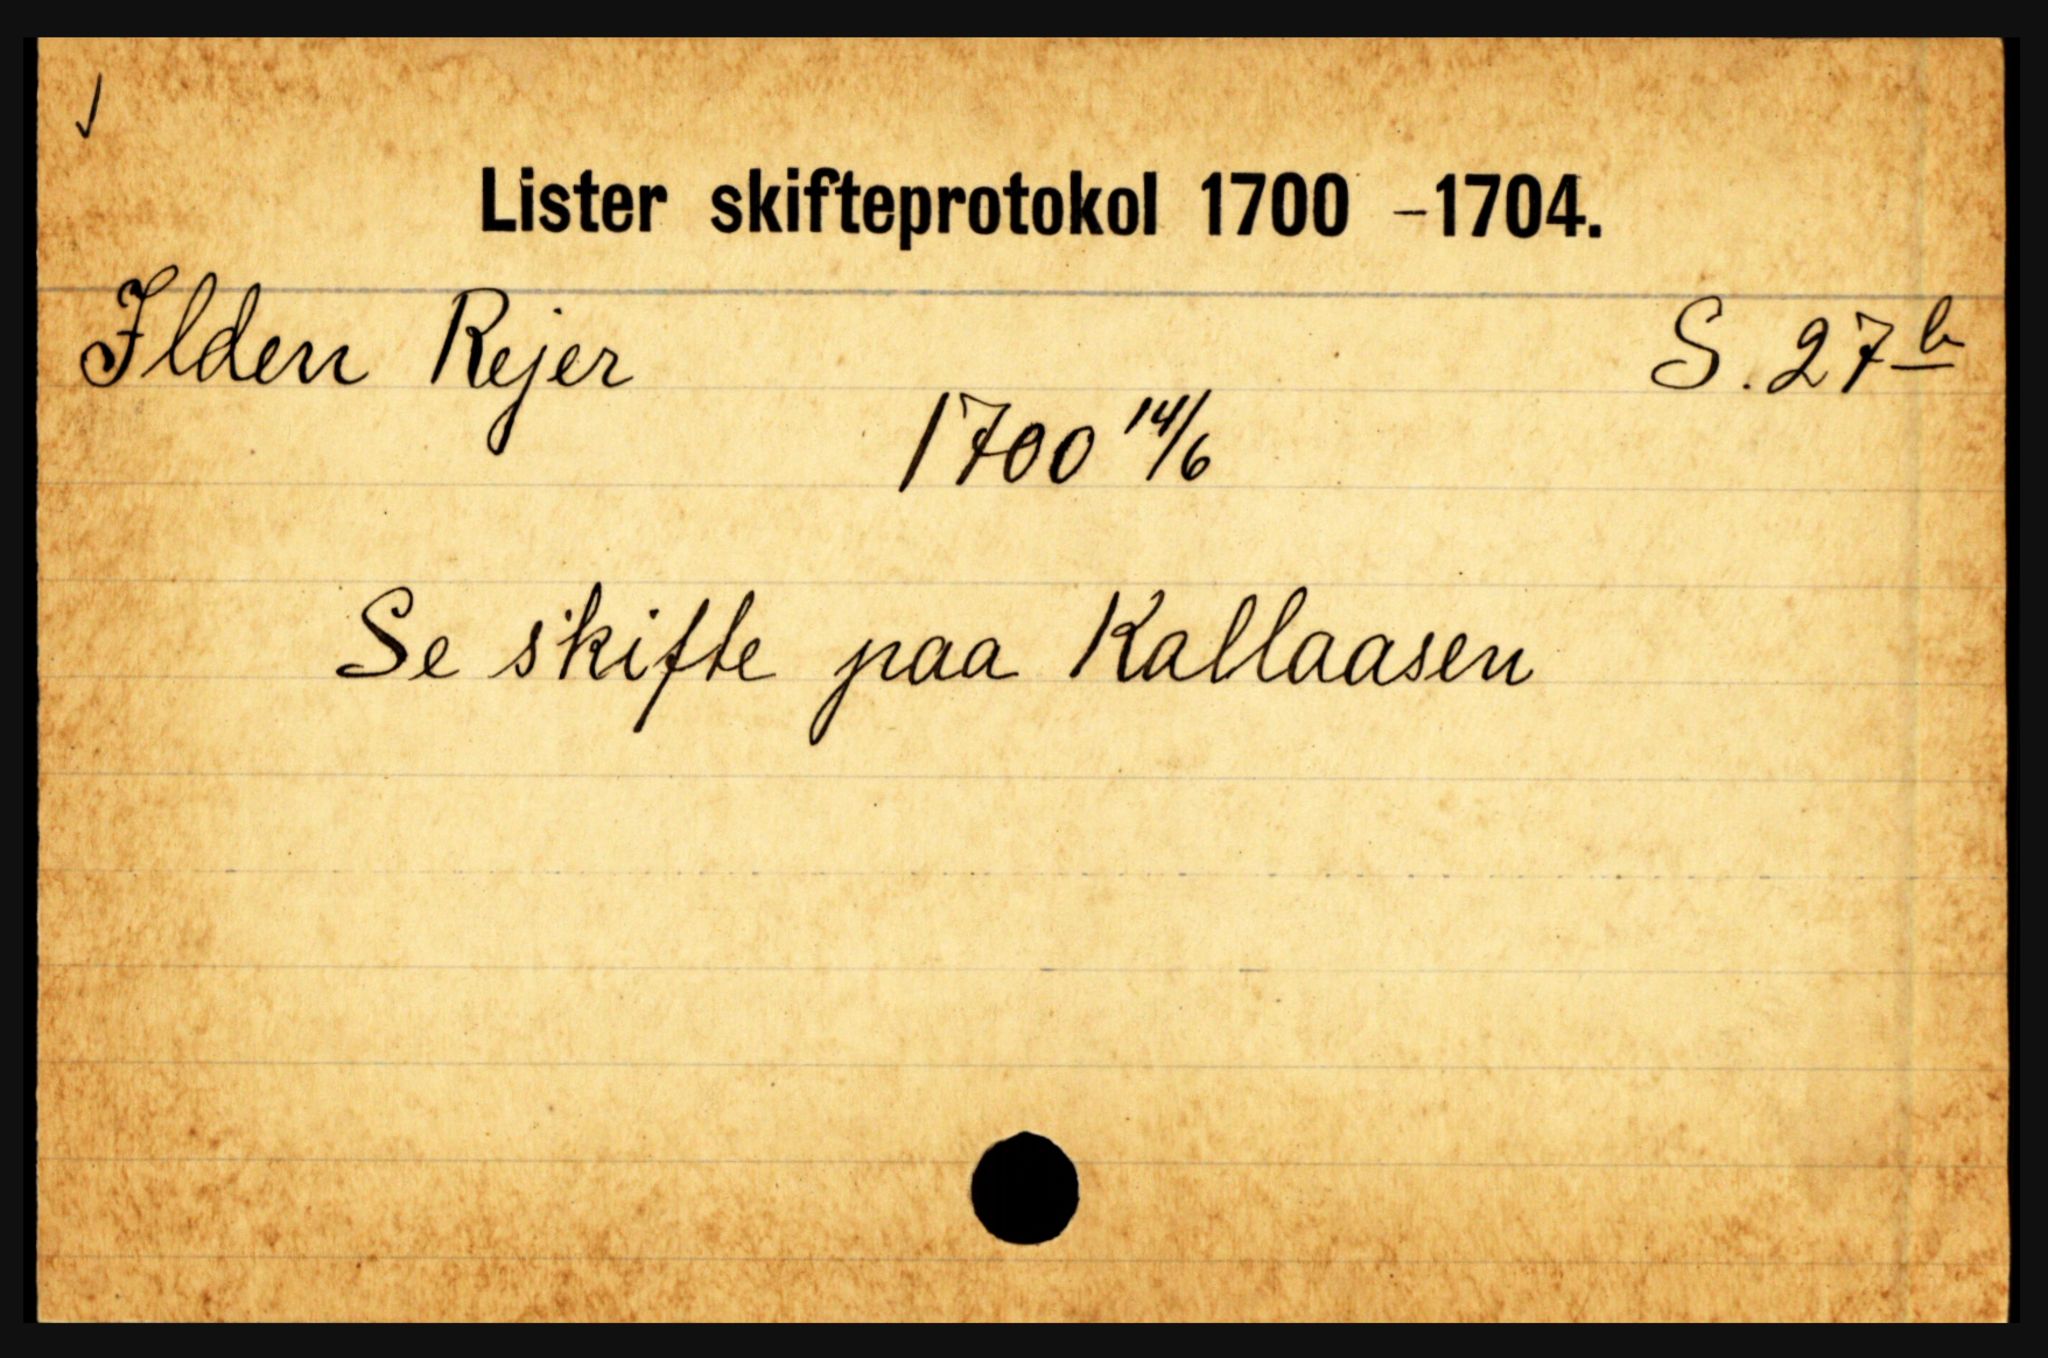 Lister skifteprotokol 1700 -1704.
Ilden Rejer S. 27 b
1700 14/6
Se skifte paa Kallaasen